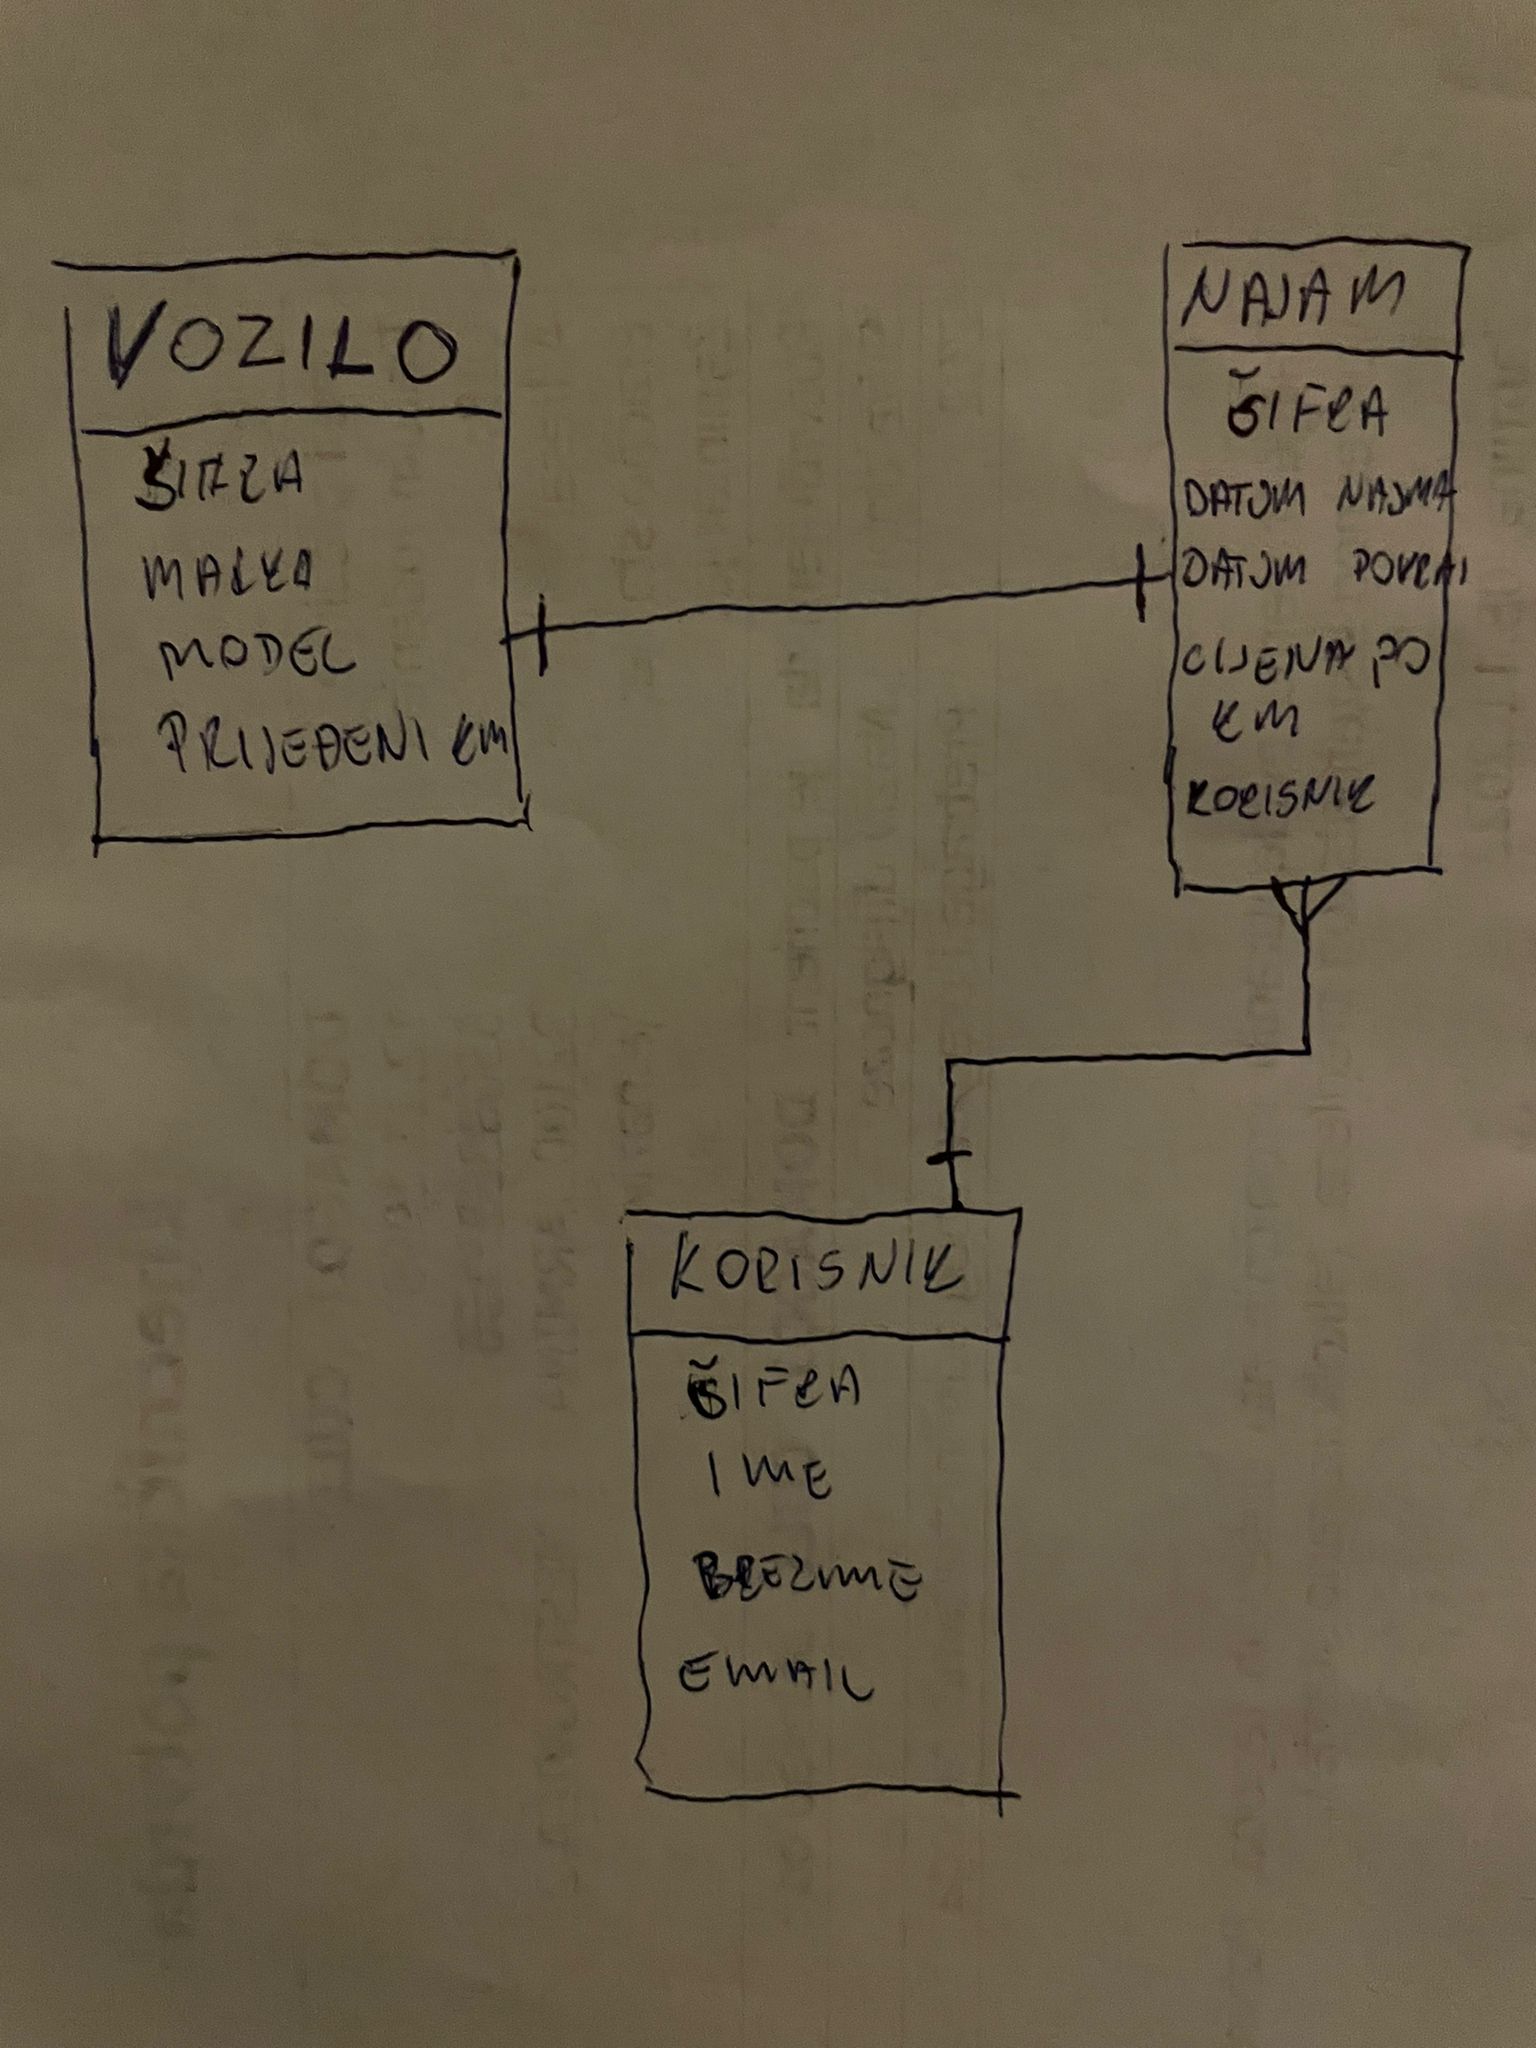 VOZILO
ŠIFRA
MARKA
MODEL
PRIJEĐENI KM
NAJAM
ŠIFRA
DATUM NAJMA
DATUM POVRAT
CIJENA PO
KM
KORISNIK
KORISNIK
ŠIFRA
IME
PREZIME
EMAIL